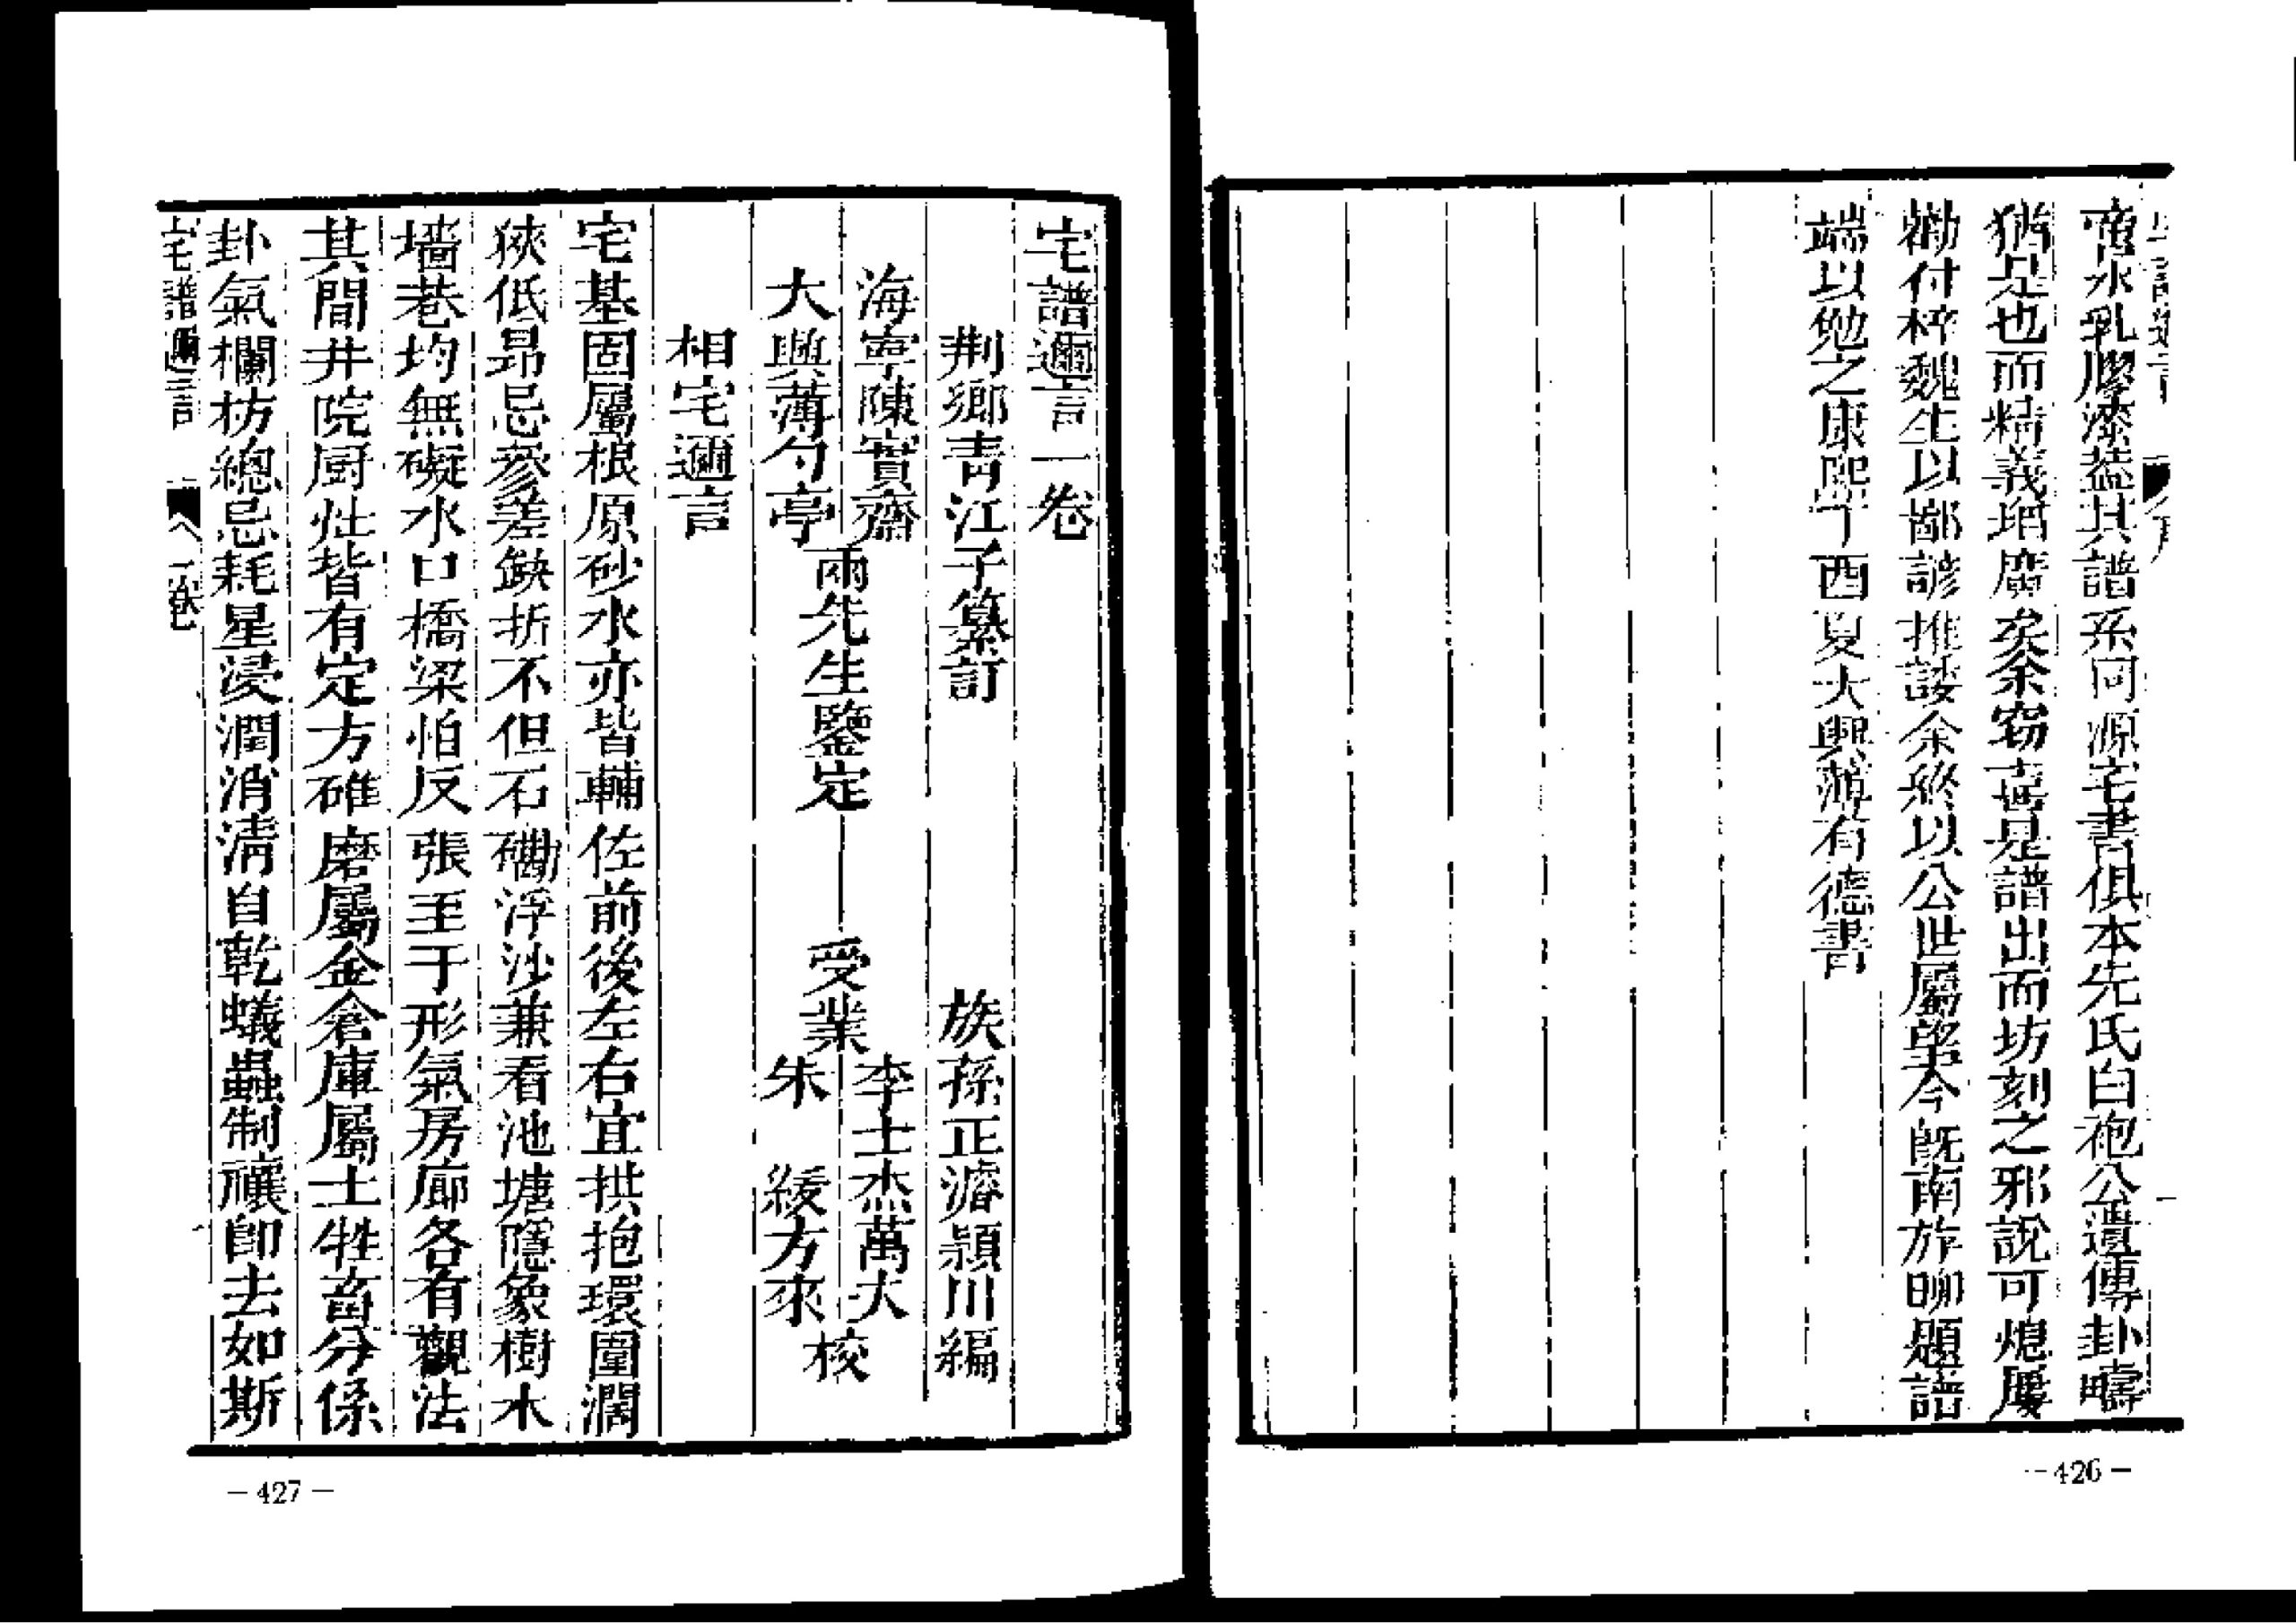 水乳膠漆蓋其譜系同源宅書俱本先氏白袍公遺傳卦疇
猶是也而精義增廣矣余竊喜是譜出而坊刻之邪說可熄屢
勸付梓魏生以鄙諺推諉余終以公世屬望今既南旋聊題譜
端以勉之康熙丁酉夏大興薄有德書
—426—
宅譜邇言一卷
荆鄉青江子纂訂
族孫正濬頴川編
海寧陳實齋
大興薄勺亭
兩先生鑒定
受業
李士杰萬大
朱 綬方來
校
相宅邇言
宅基固屬根原砂水亦皆輔佐前後左右宜拱抱環圍濶
狹低昻忌參差缺折不但石磡浮沙兼看池塘隱象樹木
墻巷均無礙水口橋梁怕反張至于形氣房廊各有觀法
其間井院厨灶皆有定方碓磨屬金倉庫屬土牲畜分係
卦氣欄枋總忌耗星浸潤消清自乾蟻蟲制禳卽去如斯
宅譜邇言
一卷
—427—